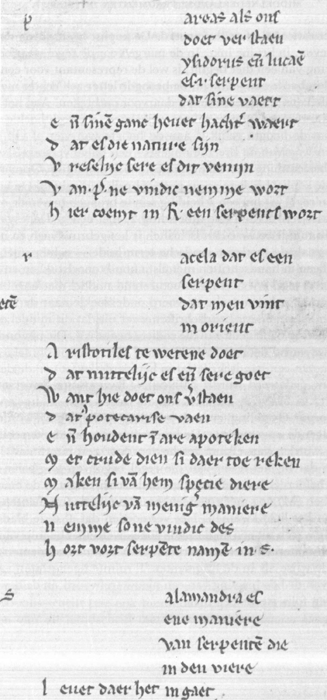 p areas als ons
doet verstaen
ysidorus eñ lucaē
es .i. serpent
dat sine vaert
e ñ sinē ganc heuet hacht' waert
d at es die nature sijn
v reselijc sere es dit venijn
v an .p. ne vindic nemme wort
h ier coemt in R. een serpents wort
r acela dat es een
serpent
dat men vint
in orient
A ristotiles te wetene doet
d at nuttelijc es eñ sere goet
W ant hie doet ons v'staen
d at potecarise vaen
e ñ houdent in are apoteken
m et crude dien si daer toe reken
m aken si vā hem specie diere
N uttelijc vā menig' maniere
n emme so ne vindic des
h ort vort serpēte namē in s.
s alamandra es
ene maniere
van serpentē die
in den viere
l euet daer het in gaet
etē